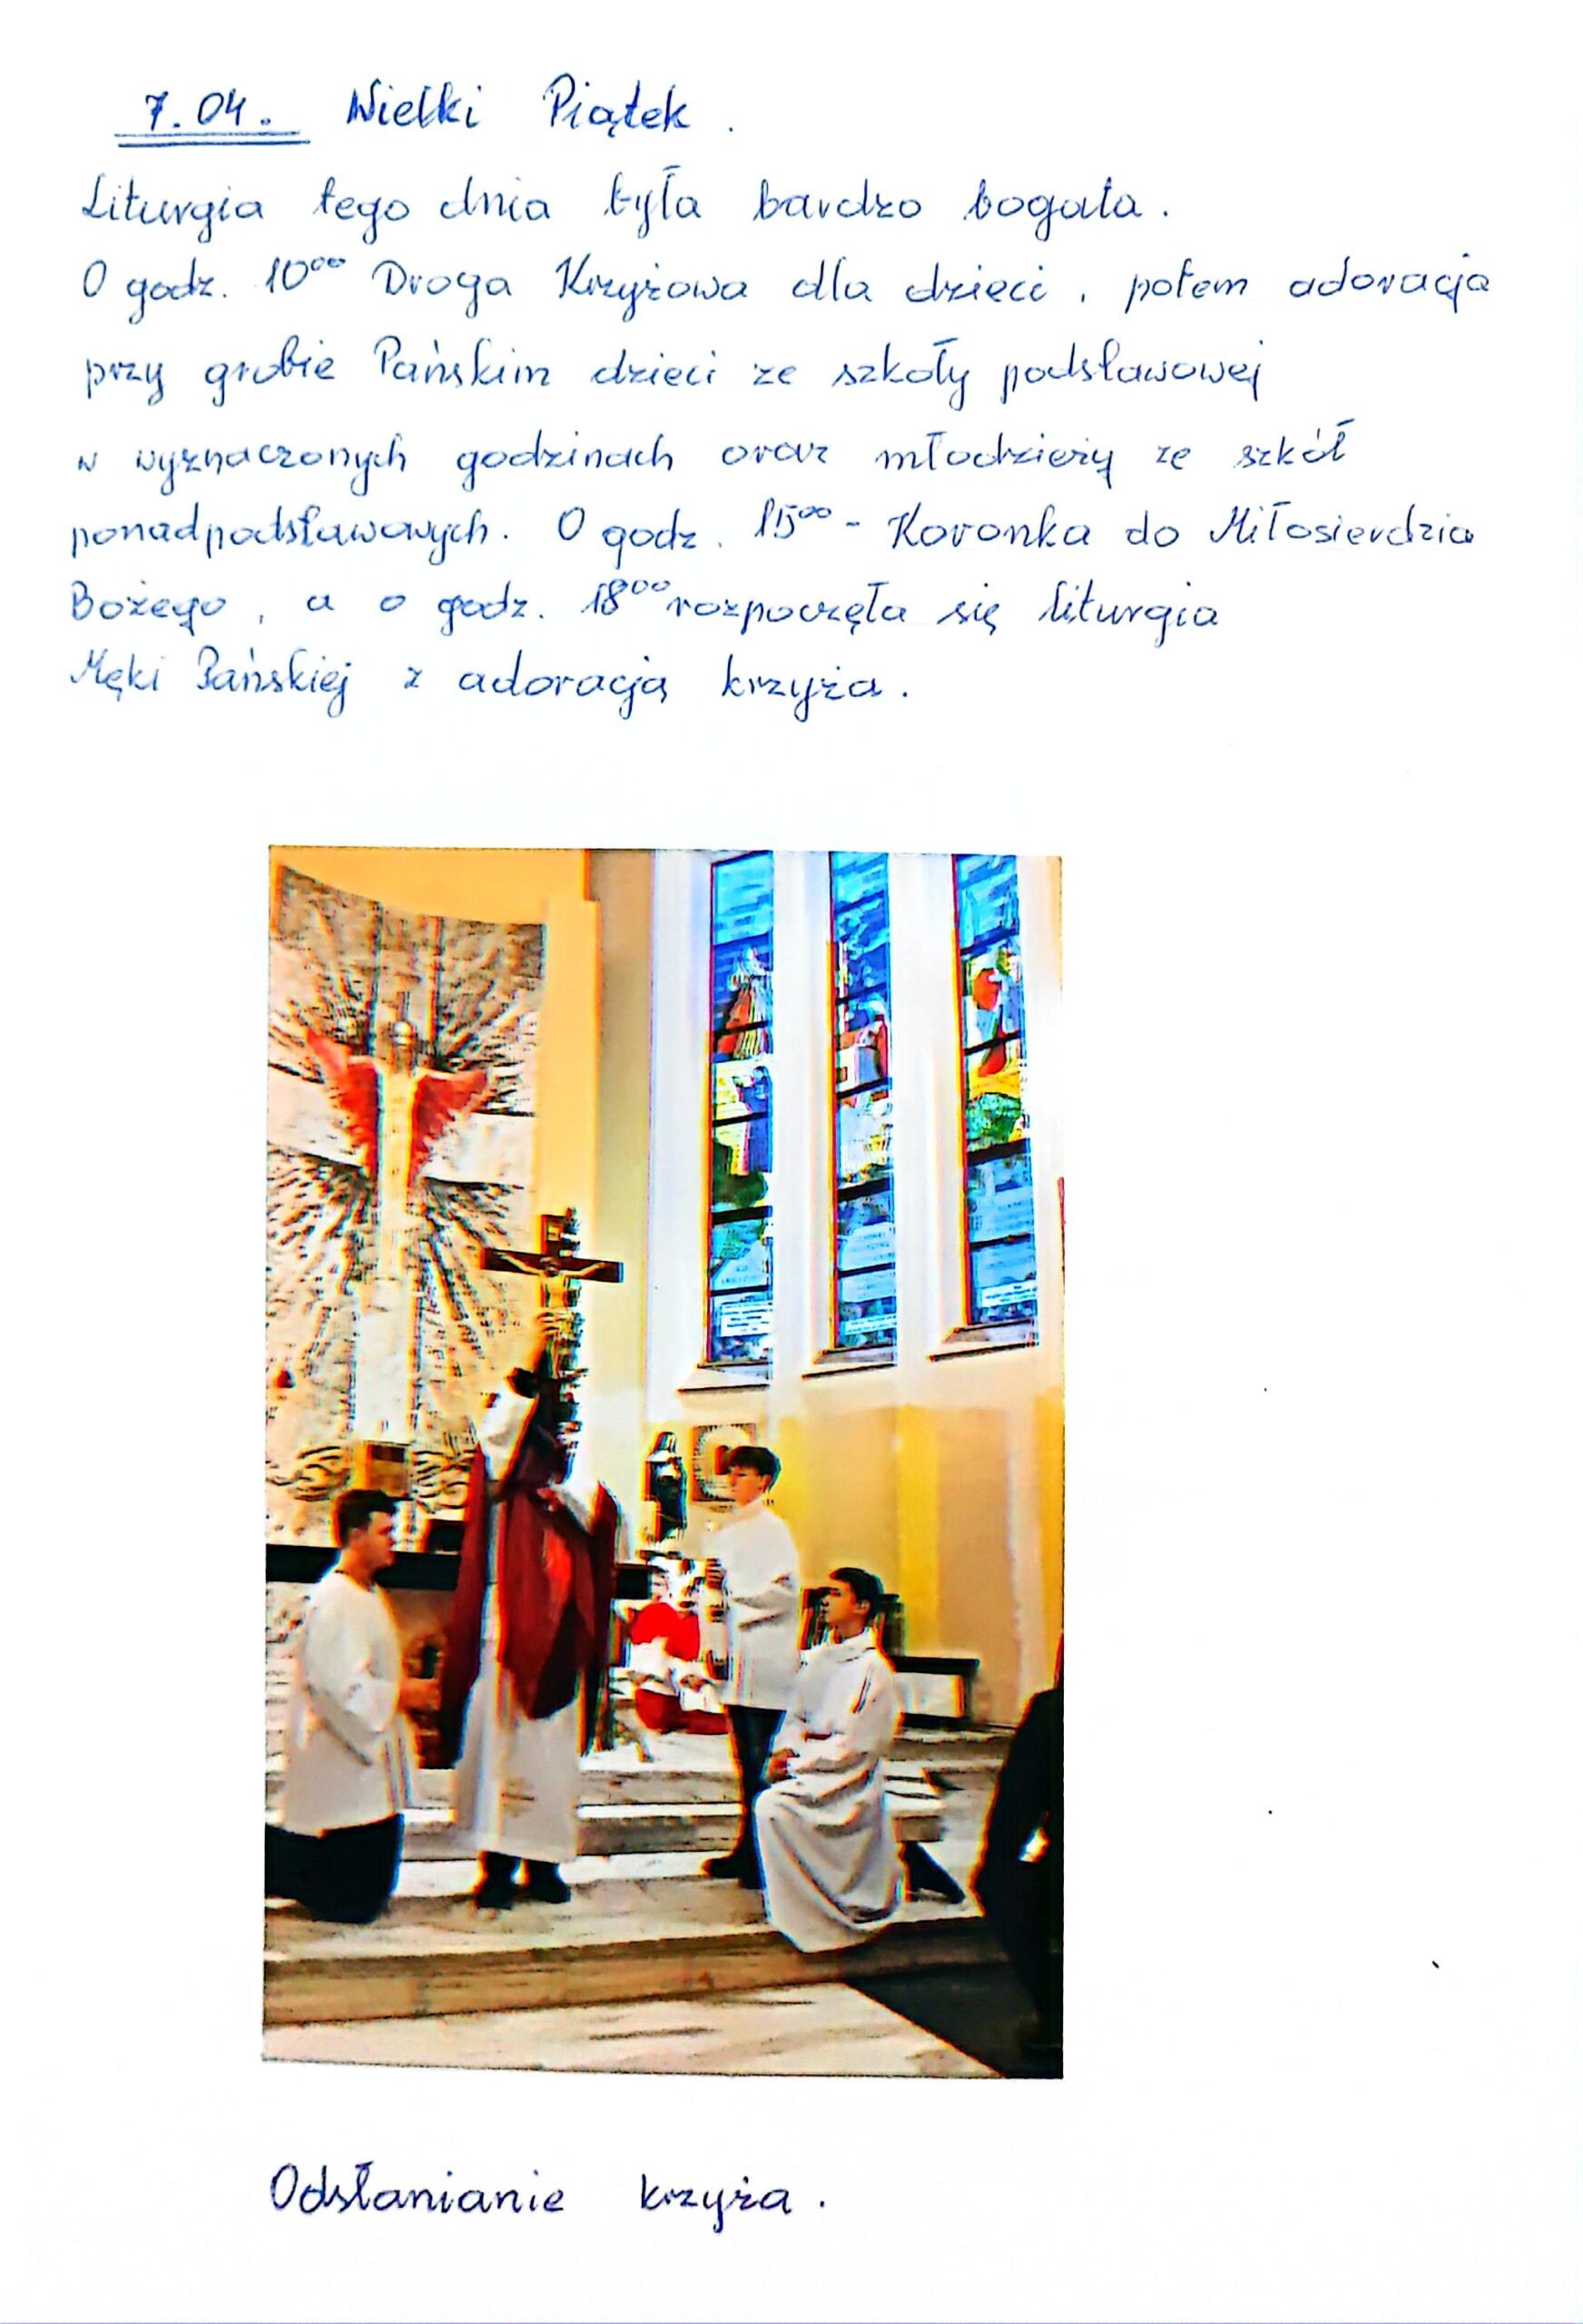 7.04. Wielki Piątek.
Liturgia tego dnia była bardzo bogata.
O godz. 10⁰⁰ Droga Krzyżowa dla dzieci, potem adoracja
przy grobie Pańskim dzieci ze szkoły podstawowej
w wyznaczonych godzinach oraz młodzieży ze szkół
ponadpodstawowych. O godz. 15⁰⁰ - Koronka do Miłosierdzia
Bożego, a o godz. 18⁰⁰ rozpoczęła się liturgia
Męki Pańskiej z adoracją krzyża.
Odsłanianie krzyża.